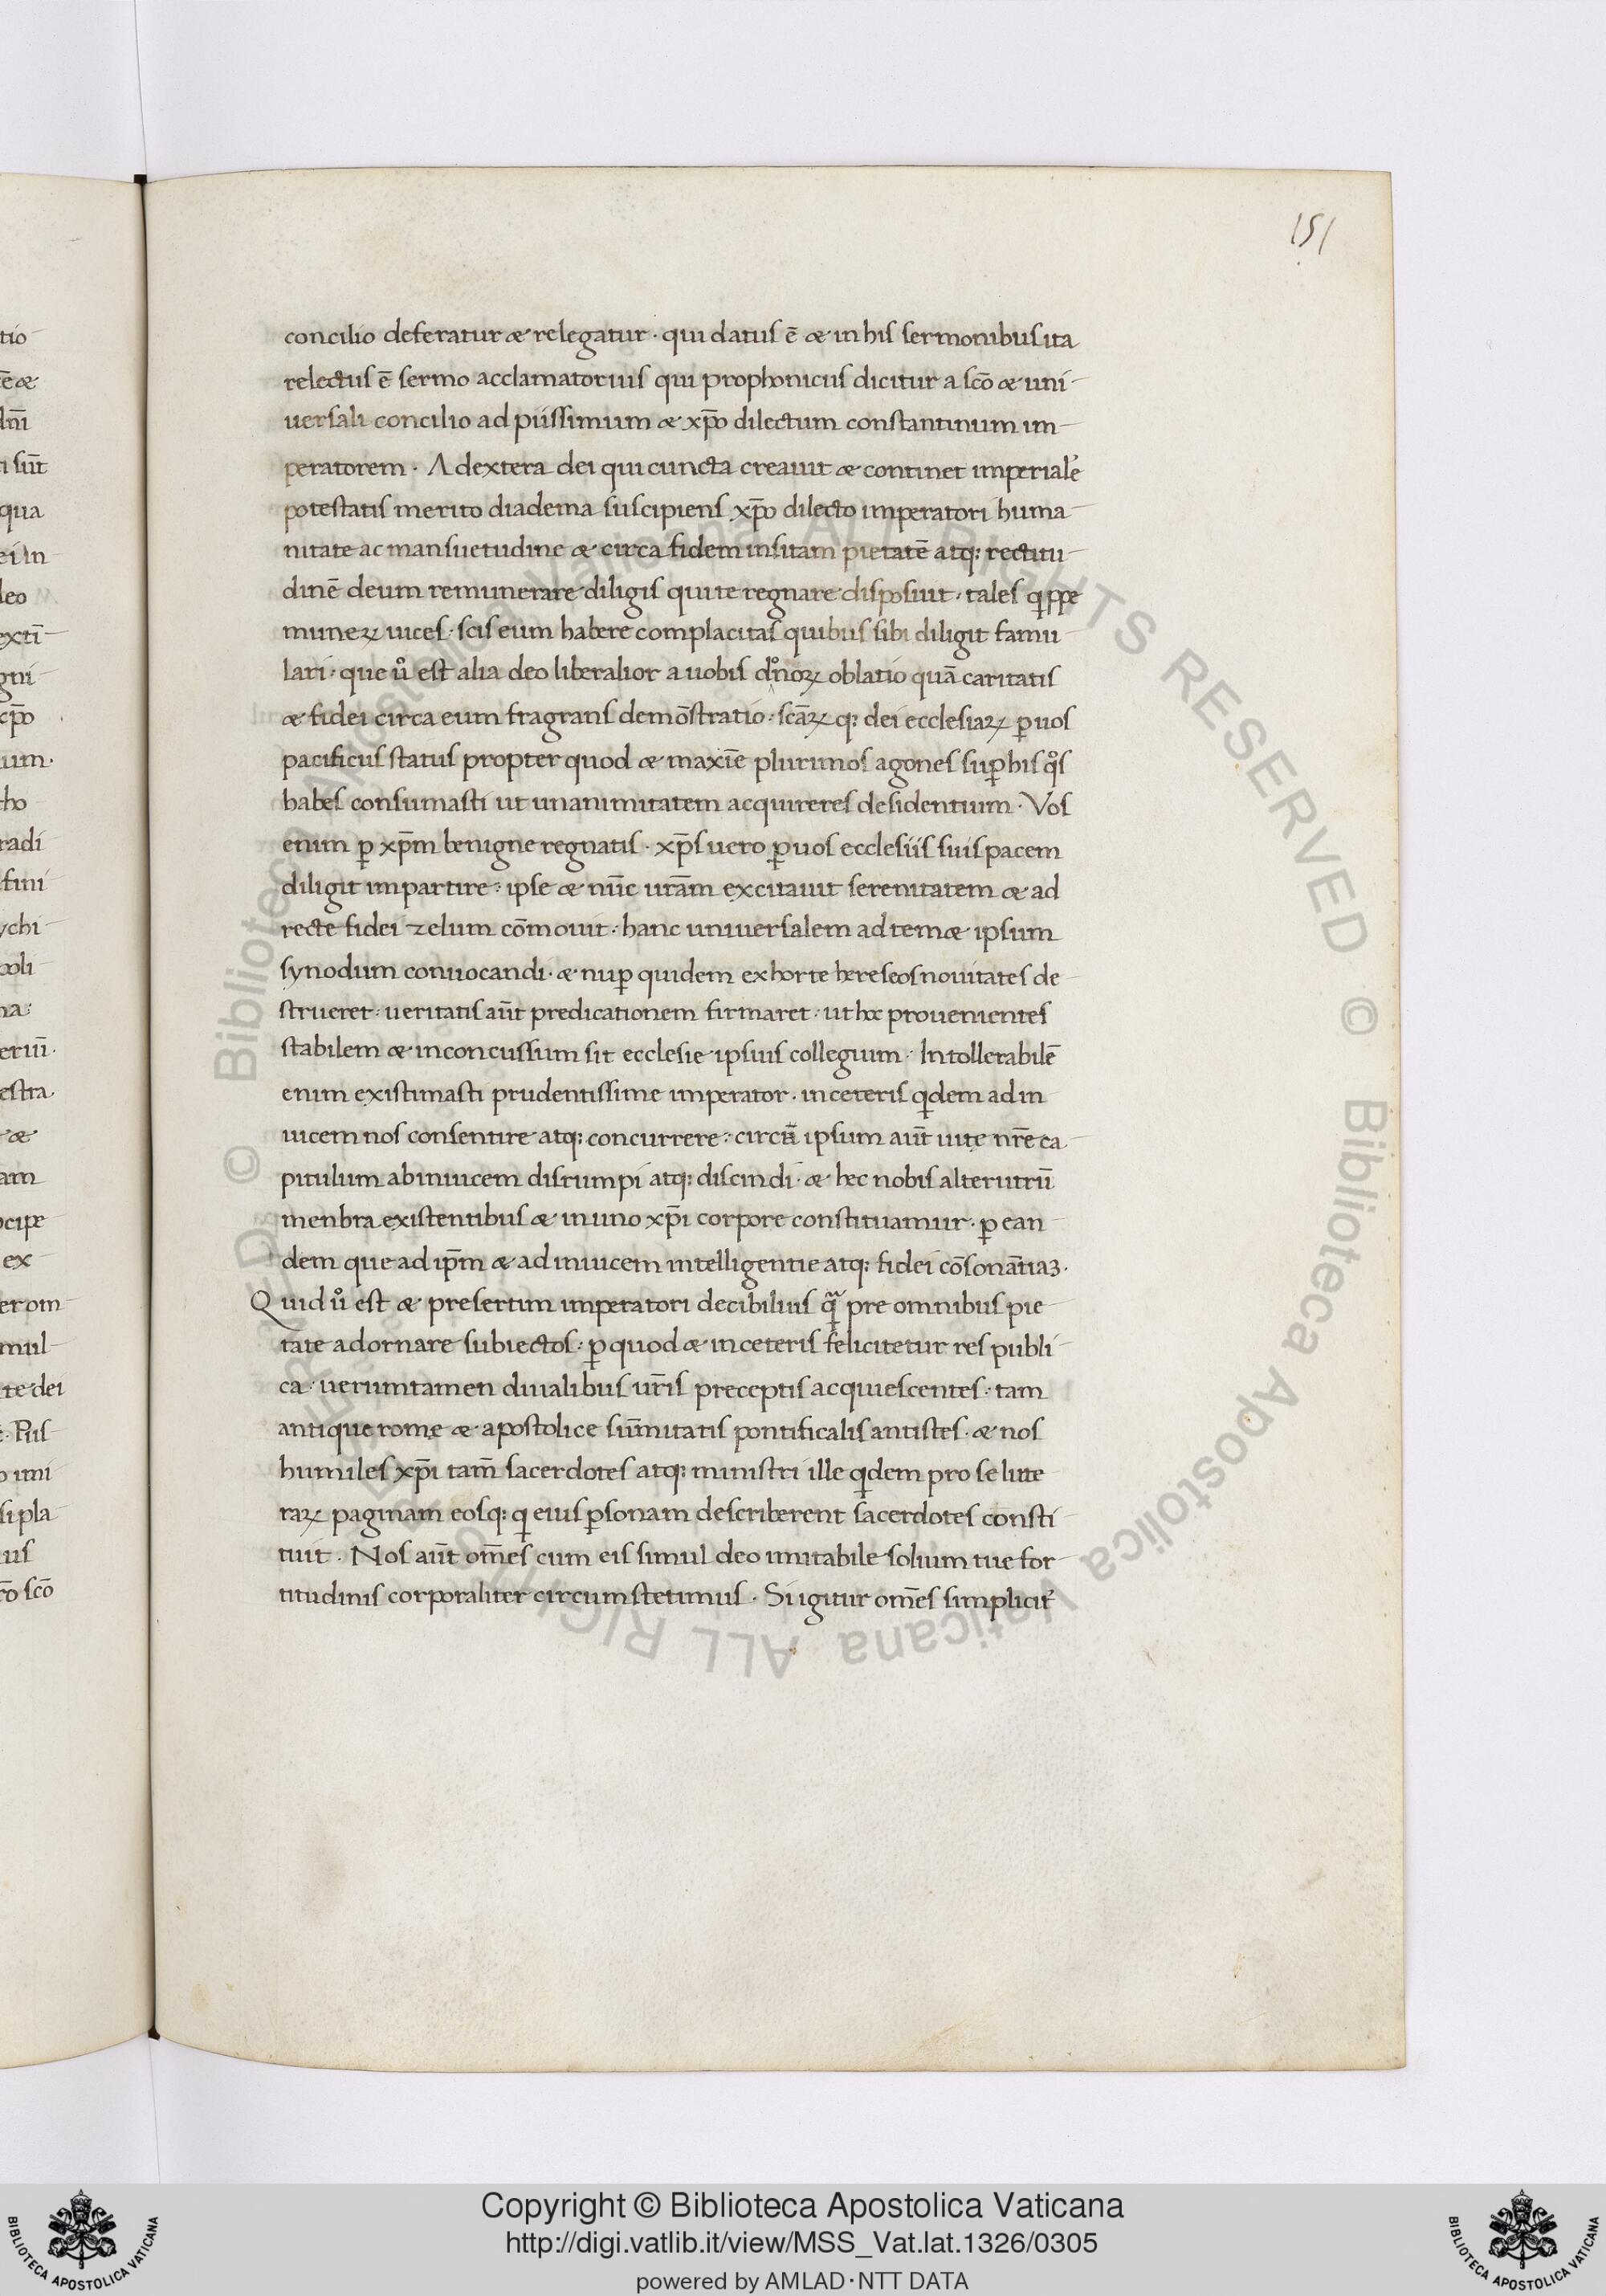 151
concilio deferatur & relegatur · qui datus ē & in his sermonibus ita
relectus ē sermo acclamatorius qui prophonicus dicitur a sc̄o & uni-
uersali concilio ad piissimum & xp̄o dilectum constantinum im-
peratorem · A dextera dei qui cuncta creauit & continet imperiale
potestatis merito diadema suscipiens xp̄o dilecto imperatori huma-
nitate ac mansuetudine & circa fidem insitam pietatē atq: rectitu-
dinē deum remunerare diligis qui te regnare disposiut · tales qippe
munerꝝ uices · scis eum habere complacitas quibus sibi diligit famu-
lari · que u᷎ est alia deo liberalior a uobis donoꝝ oblatio quā caritatis
& fidei circa eum fragrans demōstratio · scāꝝ q: dei ecclesiaꝝ ꝑ uos
pacificus status propter quod & maxīe plurimos agones suꝑ his qͦs
habes consumasti ut unanimitatem acquireres desidentium · Vos
enim ꝑ xp̄m benigne regnatis · xp̄s uero ꝑ uos ecclesiis suis pacem
diligit impartire · ipse & nūc ur̄am excitauit serenitatem & ad
recte fidei zelum cōmouit · hanc uniuersalem ad tem& ipsum
synodum conuocandi · & nuꝑ quidem exhorte hereseos nouitates de-
strueret · ueritatis aūt predicationem firmaret · ut hoc prouenientes
stabilem & inconcussum sit ecclesie ipsius collegium · Intollerabilē
enim existimasti prudentissime imperator · in ceteris qidem ad in
uicem nos consentire atq: concurrere · circū ipsum aūt uite nr̄e ca-
pitulum abinuicem disrumpi atq: discindi · & hec nobis alterutrū
menbra existentibus & in uno xp̄i corpore constituamur · ꝑ ean-
dem que ad ip̄m & ad inuicem intelligentie atq: fidei cōsonātiaꝫ ·
Quid u᷎ est & presertim imperatori decibilius q̄ pre omnibus pie-
tate adornare subiectos · ꝑ quod & in ceteris felicitetur res publi-
ca · uerumtamen diualibus ur̄is preceptis acquiescentes · tam
antique rome & apostolice sūmitatis pontificalis antistes · & nos
humiles xp̄i tam̄ sacerdotes atq: ministri ille qidem pro se litte
raꝝ paginam eosq: qi eius ꝑsonam describerent sacerdotes consti-
tuit · Nos aūt om̄es cum eis simul deo imitabile solium tue for-
titudinis corporaliter circumstetimus · Si igitur om̄es simplicit᷎
Copyright © Biblioteca Apostolica Vaticana
http://digi.vatlib.it/view/MSS_Vat.lat.1326/0305
powered by AMLAD·NTT DATA
BIBLIOTECA APOSTOLICA VATICANA
BIBLIOTECA APOSTOLICA VATICANA
© Biblioteca Apostolica Vaticana ALL RIGHTS RESERVED © Biblioteca Apostolica Vaticana ALL RIGHTS RESERVED